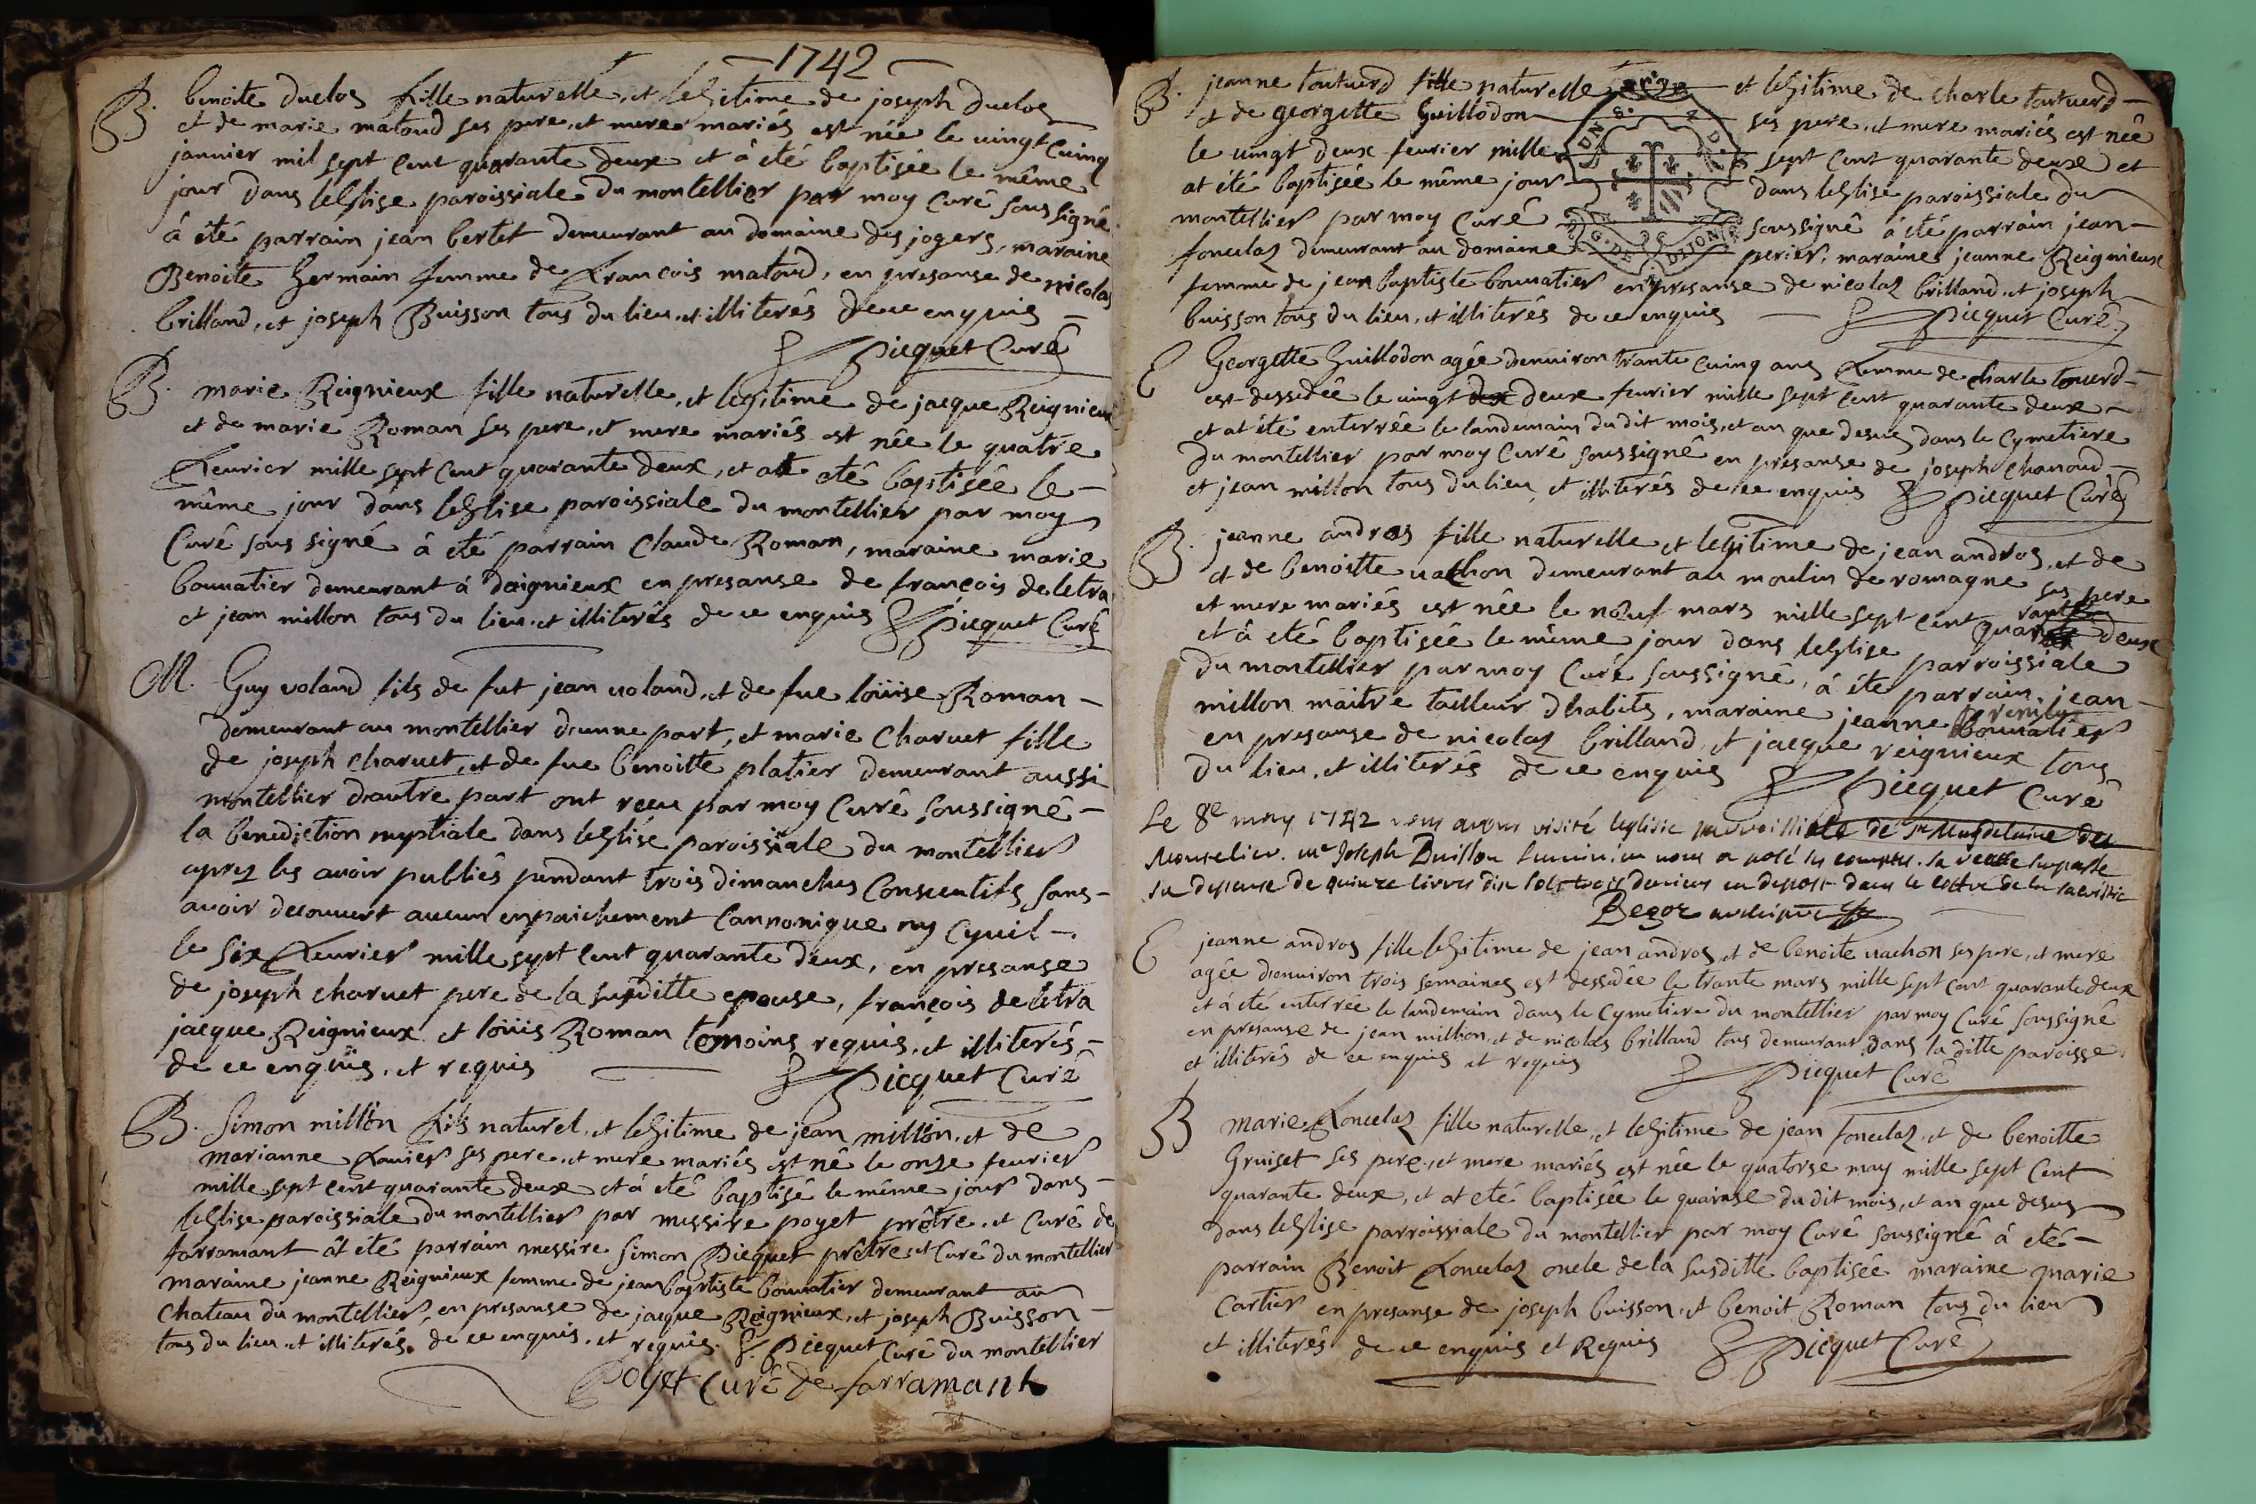 1742
B. benoite duclos fille naturelle, et lesitime de joseph duclos
et de marie matoud ses pere, et mere mariés est née le uingt cuinq
januier mil sept cent quarante deux et à eté baptisée le même
jour dans leglise paroissiale du montellier par moy curé sous signé
à eté parrain jean bertet demeurant au domaine des jogers, maraine
Benoite Germain femme de francois matoud, en presanse de nicolas
brilland, et joseph Buisson tous du lieu, et illiterés de ce enquis
Picquet Curé
B. marie Reignieux fille naturelle, et legitime de jacque Reignieux
et de marie Roman ses pere, et mere mariés est née le quatre
feurier mille sept cent quarante deux, et at eté baptisée le
même jour dans leglise paroissiale du montellier par moy
Curé sous signé à eté parrain Claude Roman, maraine marie
bouuatier demeurant à daignieux en presanse de françois deletra
et jean millon tous du lieu, et illiterés de ce enquis Picquet Curé
M. Guy uoland fils de fut jean uoland, et de fue loüise Roman
demeurant au montellier dunne part, et marie Charuet fille
de joseph charuet, et de fue benoitte platier demeurant aussi
montellier dautre part ont receu par moy Curé soussigné
la benediction nuptiale dans leglise paroissiale du montellier
aprez les auoir publiés pendant trois dimanches Consecutifs sans
auoir decouuert aucun enpaichement Cannonique ny Cyuil
le six feurier mille sept cent quarante deux, en presanse
de joseph charuet pere de la susditte epouse, françois deletra
jacque Reignieux et loüis Roman temoins requis, et illiterés
de ce enquis, et requis Picquet Curé
B. Simon millon fils naturel, et lesitime de jean millon, et de
marianne fauier ses pere, et mere mariés est né le onse feurier
mille sept cent quarante deux et à eté baptisé le même jour dans
leglise paroissiale du montellier par messire poyet prêtre, et Curé de
farramant ât été parrain messire Simon Picquet prêtre, et Curé du montellier
maraine jeanne Reignieux femme de jean baptiste bouuatier demeurant au
Chateau du montellier, en presanse de jacque Reignieux, et joseph Buisson
tous du lieu, et illiterés de ce enquis, et requis. Picquet Curé du montellier
Poyet Curé de farramant
B. jeanne toutuerd fille naturelle et lesitime de charle toutuerd
et de georgette Guillodon ses pere, et mere mariés est née
le uingt deux feurier mille sept cent quarante deux et
at été baptisée le même jour dans leglise paroissiale du
montellier par moy Curé soussigné à eté parrain jean
foncelaz demeurant au domaine perier, maraine jeanne Reignieux
femme de jean baptiste bouuatier en presanse de nicolaz brilland, et joseph
buisson tous du lieu, et illiterés de ce enquis Picquet Curé
E Georgette Guillodon agée denuiron trante cuinq ans femme de charle touerd
est dessedée le uingt deux feurier mille sept cent quarante deux
et at été enterrée le landemain dudit mois, et an que desus dans le Cymetiere
du montellier par moy Curé soussigné en presanse de joseph Chanoud
et jean millon tous du lieu, et illiterés de ce enquis Picquet Curé
B. jeanne andros fille naturelle et lesitime de jean andros, et de
et de benoitte uachon demeurant au moulin de romagne ses pere
et mere mariés est née le nœuf mars mille sept cent quarante deux
et à eté baptisée le même jour dans leglise parroissiale
du montellier par moy Curé soussigné, à éte parrain jean
millon maitre tailleur dhabits, maraine jeanne bouuatier
en presanse de nicolaz brilland, et jacque reignieux tous
du lieu, et illiterés de ce enquis Picquet Curé
Le 8e may 1742 nous avons visité leglise parroissialle de Ste Magdelaine du
Monselier. me Joseph Buisson luminier nous a posé ses comptes. sa recette surpasse
sa depense de quinze livres dix sols trois deniers en depost dans le coffre de la sacristie
E jeanne andros fille lesitime de jean andros, et de benoite uachon ses pere, et mere
agée denuiron trois semaines est dessedée le trante mars mille sept cent quarante deux
et à été enterrée le landemain dans le Cymetiere du montellier par moy Curé soussigné
en presanse de jean million, et de nicolas brilland tous demeurant dans la ditte paroisse
et illiterés de ce enquis et requis Picquet Curé
B marie foncelaz fille naturelle, et lesitime de jean foncelaz, et de benoitte
Gruiset ses pere, et mere mariés est née le quatorse may mille sept Cent
quarante deux, et at eté baptisée le quainse du dit mois, et an que desus
dans leglise parroissiale du montellier par moy Curé soussigné à eté
parrain Benoit foncelaz oncle de la susditte baptisée maraine marie
Cartier en presanse de joseph buisson, et benoit Roman tous du lieu
et illiterés de ce enquis et Requis Picquet Curé